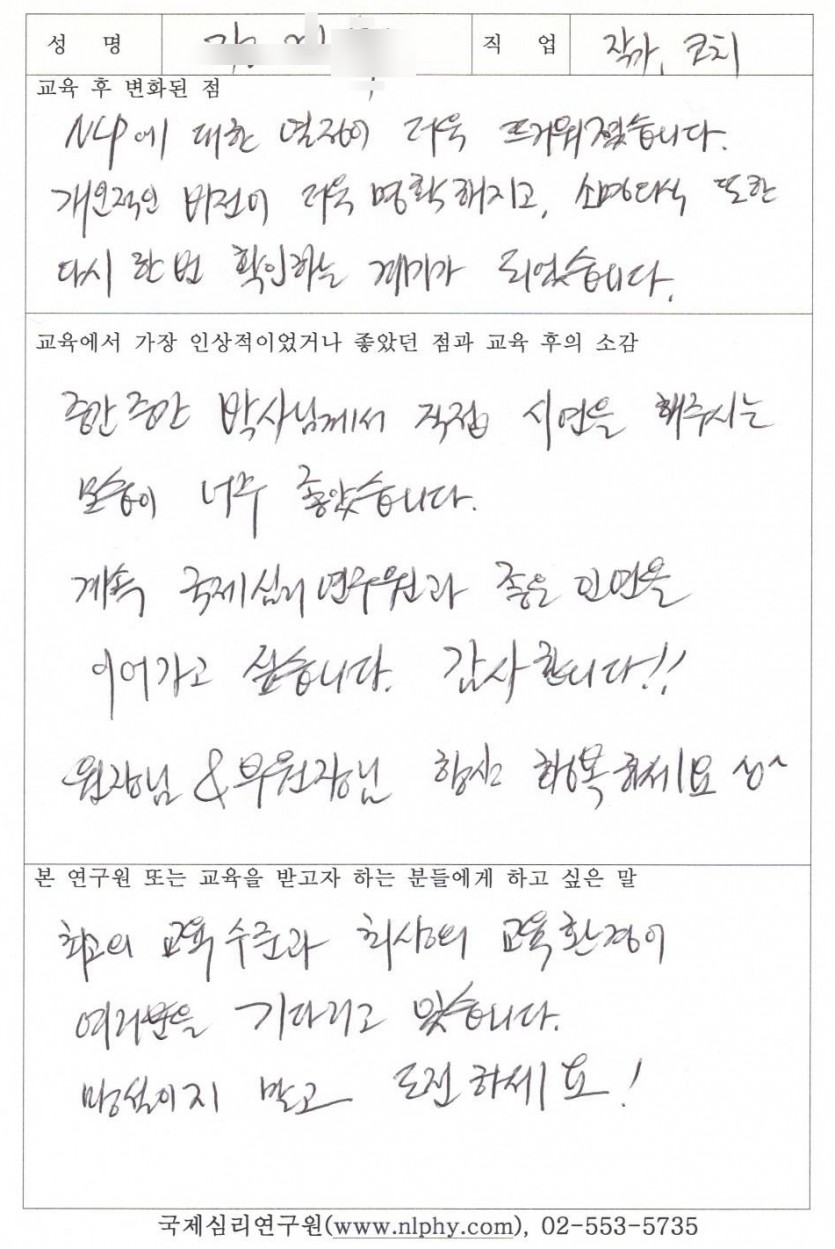 성 명 직 업 작가, 코치
교육 후 변화된 점
NLP에 대한 열정이 더욱 뜨거워졌습니다.
개인적인 비전이 더욱 명확해지고, 소명의식 또한
다시 한 번 확인하는 계기가 되었습니다.
교육에서 가장 인상적이었거나 좋았던 점과 교육 후의 소감
중간중간 박사님께서 직접 시연을 해주시는
모습이 너무 좋았습니다.
계속 국제심리연구원과 좋은 인연을
이어가고 싶습니다. 감사합니다!!
원장님 & 부원장님 항상 행복하세요 ^^
본 연구원 또는 교육을 받고자 하는 분들에게 하고 싶은 말
최고의 교육 수준과 최상의 교육환경이
여러분을 기다리고 있습니다.
망설이지 말고 도전하세요!
국제심리연구원(www.nlphy.com), 02-553-5735